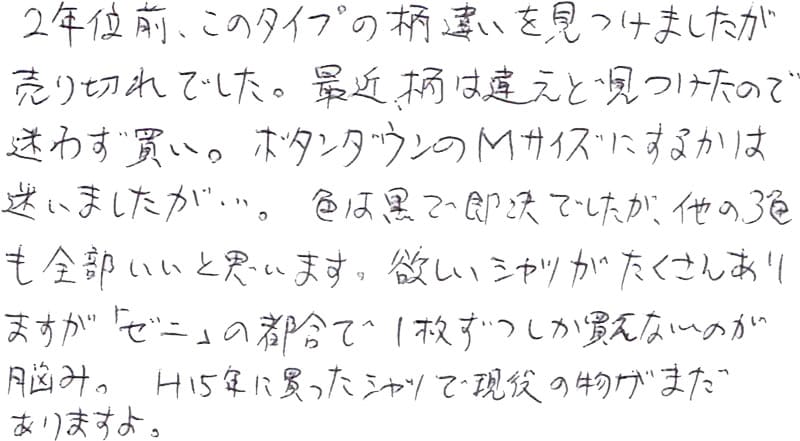 2年位前、このタイプの柄違いを見つけましたが
売り切れでした。最近、柄は違えど見つけたので
迷わず買い。ボタンダウンのMサイズにするかは
迷いましたが…。色は黒で即決でしたが、他の3色
も全部いいと思います。欲しいシャツがたくさんあり
ますが「ゼニ」の都合で1枚ずつしか買えないのが
脳み。H15年に買ったシャツで現役の物がまだ
ありますよ。